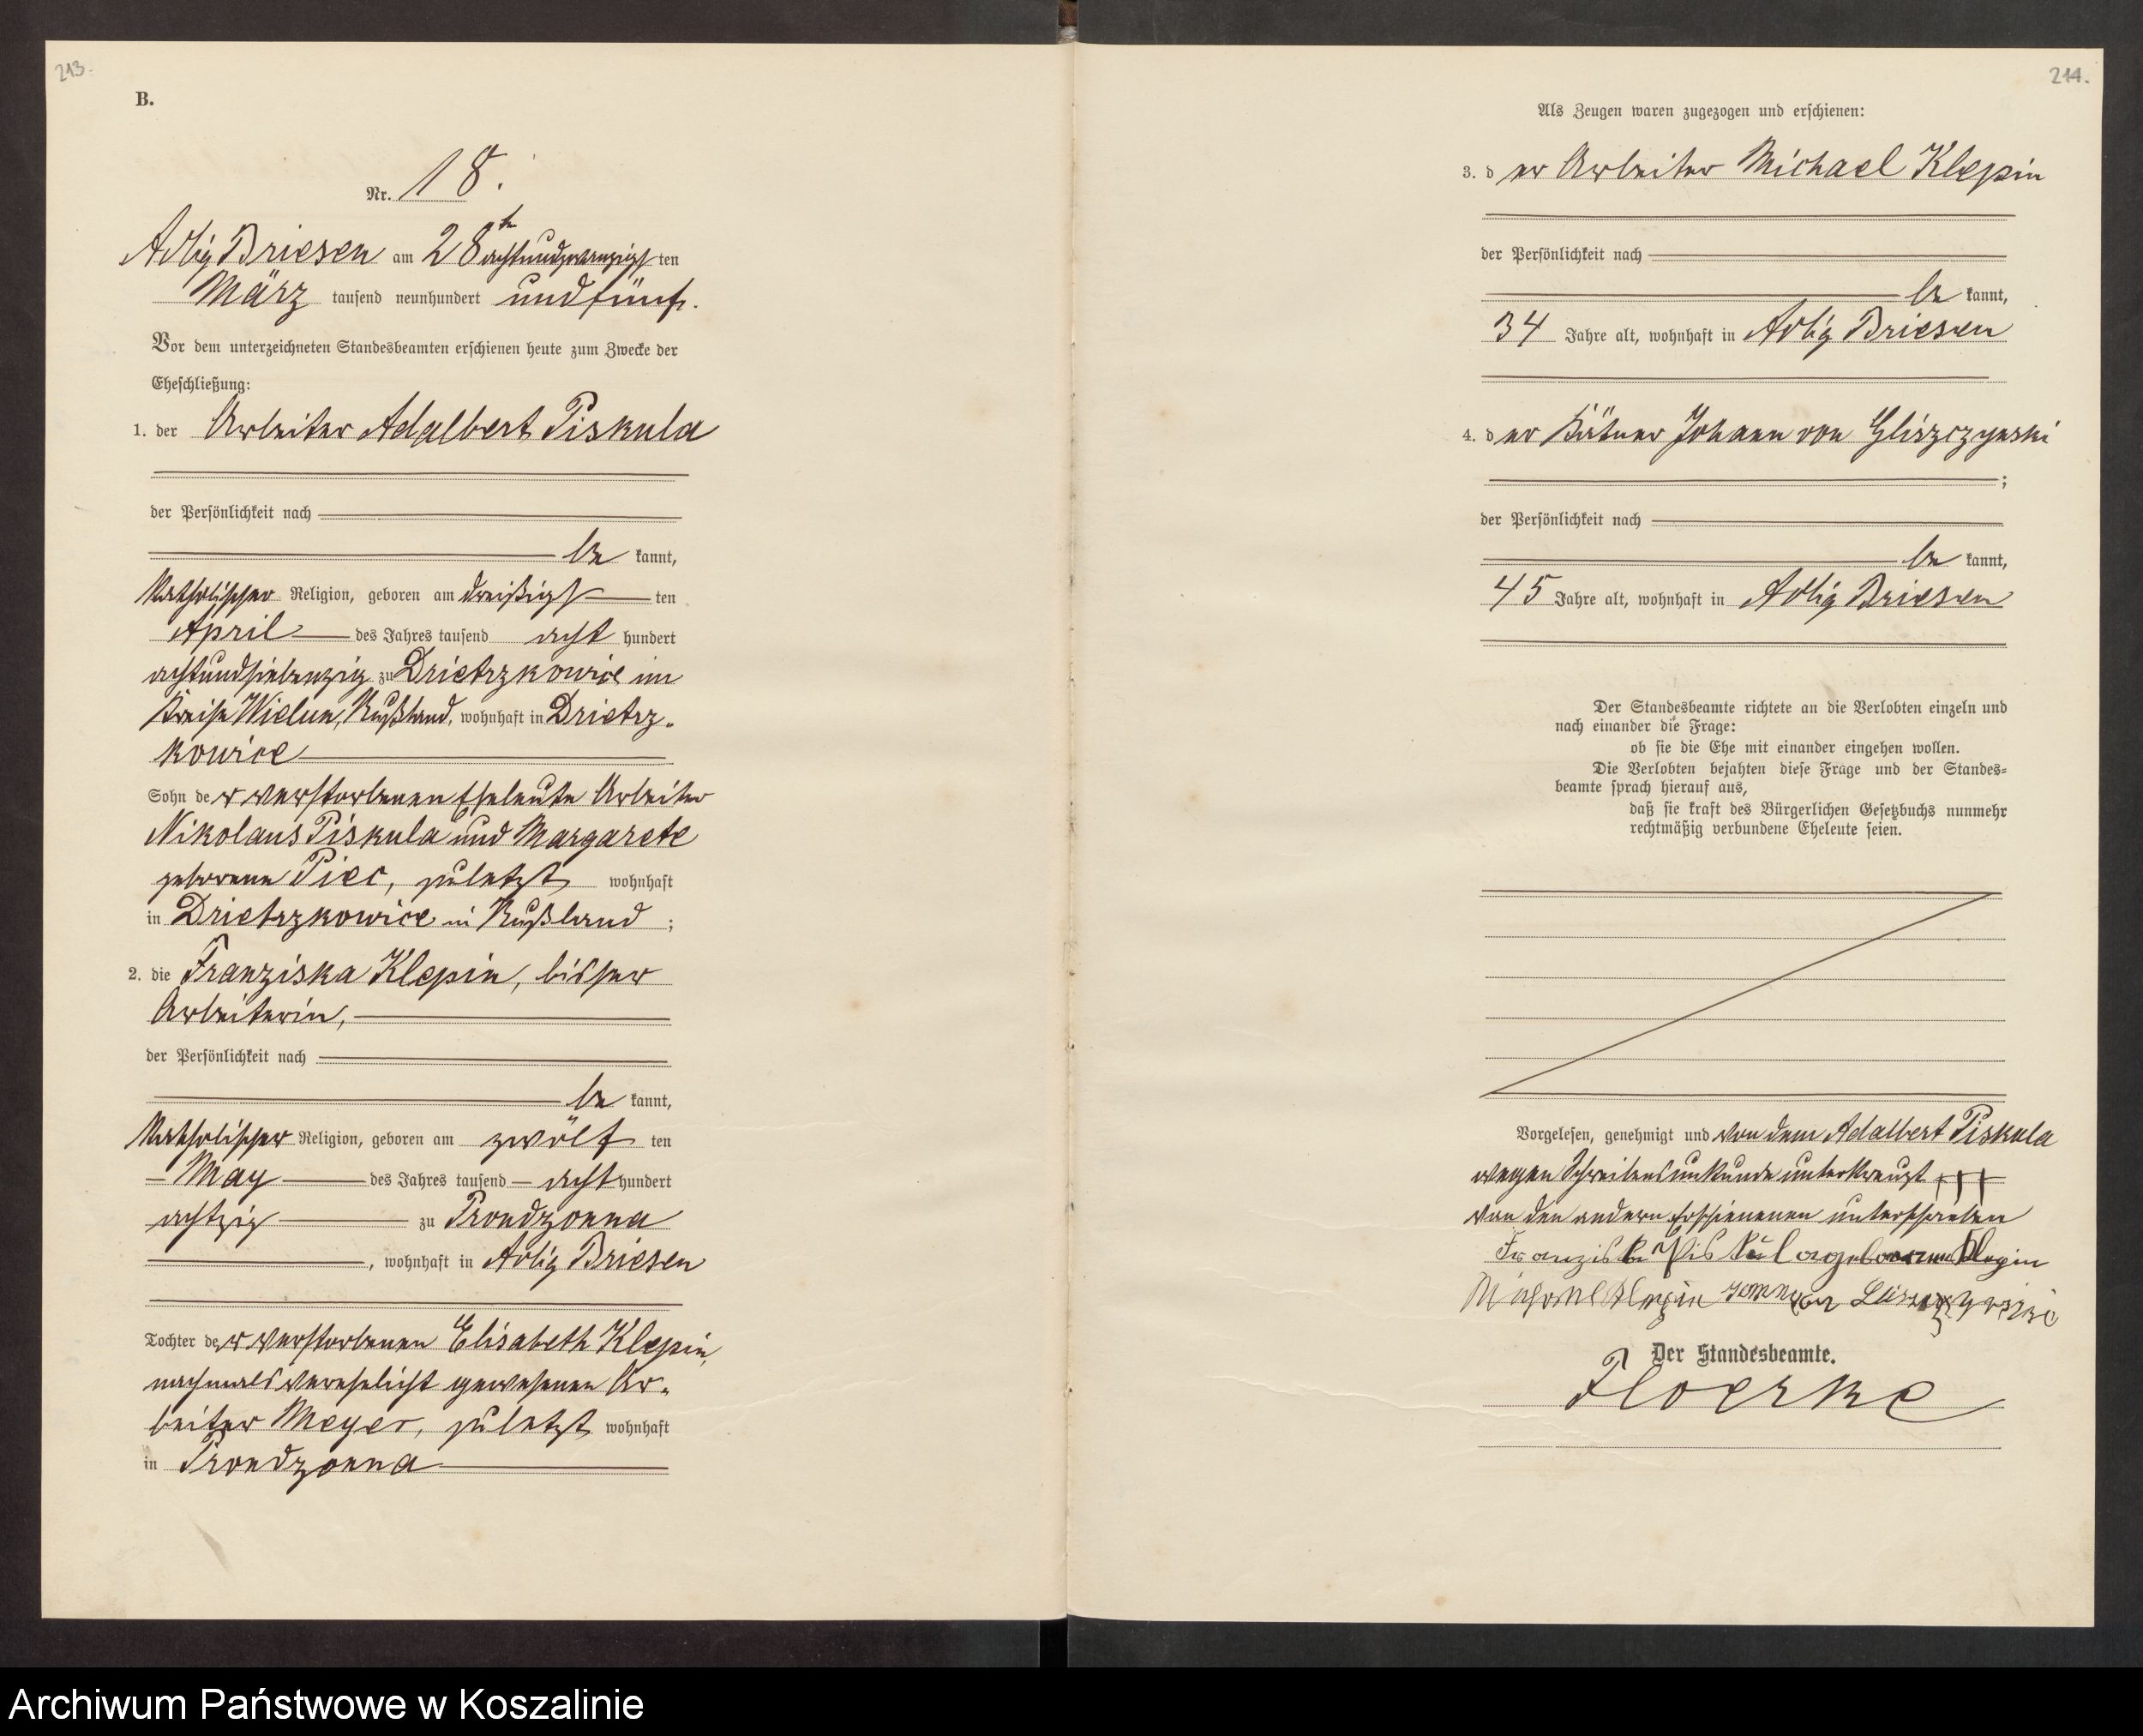 213.
B.
Nr. 18.
Adlig Briesen am 28ten achtundzwanzigsten
März tausend neunhundert und fünf.
Vor dem unterzeichneten Standesbeamten erschienen heute zum Zwecke der
Eheschließung:
1. der Arbeiter Adalbert Piskula
der Persönlichkeit nach
be kannt,
katholischer Religion, geboren am dreißigst ten
April des Jahres tausend acht hundert
achtundsiebenzig zu Drietrzkowice im
Kreise Wielun, Rußland, wohnhaft in Drietrz-
kowice
Sohn der verstorbenen Eheleute Arbeiter
Nikolaus Piskula und Margarete
geborene Piec, zuletzt wohnhaft
in Drietrzkowice in Rußland ;
2. die Franziska Klepin, bisher
Arbeiterin,
der Persönlichkeit nach
be kannt,
katholischer Religion, geboren am zwölf ten
May des Jahres tausend acht hundert
achtzig zu Prondzonna
, wohnhaft in Adlig Briesen
Tochter der verstorbenen Elisabeth Klepin,
nachmals verehelicht gewesenen Ar-
beiter Meyer, zuletzt wohnhaft
in Prondzonna
214.
Als Zeugen waren zugezogen und erschienen:
3. d er Arbeiter Michael Klepin
der Persönlichkeit nach
be kannt,
34 Jahre alt, wohnhaft in Adlig Briesen
4. d er Kätner Johann von Gliszczynski
;
der Persönlichkeit nach
be kannt,
45 Jahre alt, wohnhaft in Adlig Briesen
Der Standesbeamte richtete an die Verlobten einzeln und
nach einander die Frage:
ob sie die Ehe mit einander eingehen wollen.
Die Verlobten bejahten diese Frage und der Standes-
beamte sprach hierauf aus,
daß sie kraft des Bürgerlichen Gesetzbuchs nunmehr
rechtmäßig verbundene Eheleute seien.
Vorgelesen, genehmigt und von dem Adalbert Piskula
wegen Schreibensunkunde unterkreuzt +++
von den andern Erschienenen unterschrieben
Franziska Piskula geborene Klepin
Michael Klepin
Der Standesbeamte.
Floerke
Archiwum Państwowe w Koszalinie